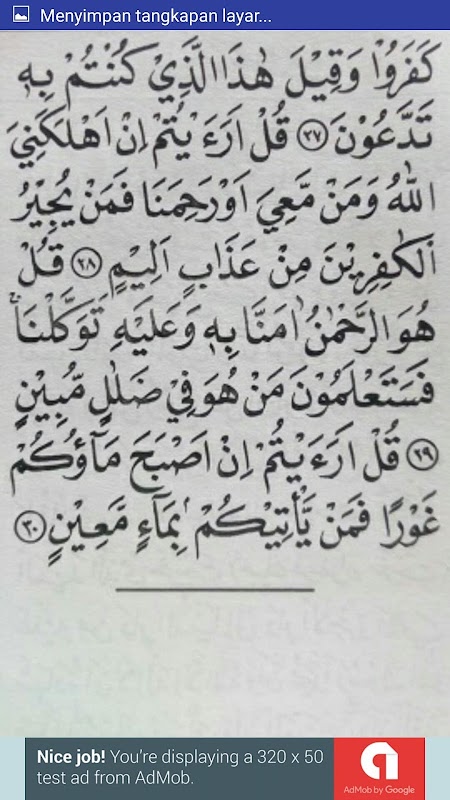 Menyimpan tangkapan layar...
كَفَرُوْا وَقِيْلَ هٰذَا الَّذِيْ كُنْتُمْ بِهٖ
تَدَّعُوْنَ ﴿٢٧﴾ قُلْ اَرَءَيْتُمْ اِنْ اَهْلَكَنِيَ
اللّٰهُ وَمَنْ مَّعِيَ اَوْرَحِمَنَا فَمَنْ يُّجِيْرُ
الْكٰفِرِيْنَ مِنْ عَذَابٍ اَلِيْمٍ ﴿٢٨﴾ قُلْ
هُوَ الرَّحْمٰنُ اٰمَنَّا بِهٖ وَعَلَيْهِ تَوَكَّلْنَاۚ
فَسَتَعْلَمُوْنَ مَنْ هُوَ فِيْ ضَلٰلٍ مُّبِيْنٍ
﴿٢٩﴾ قُلْ اَرَءَيْتُمْ اِنْ اَصْبَحَ مَآؤُكُمْ
غَوْرًا فَمَنْ يَّأْتِيْكُمْ بِمَآءٍ مَّعِيْنٍ ﴿٣٠﴾
Nice job! You're displaying a 320 x 50
test ad from AdMob.
AdMob by Google